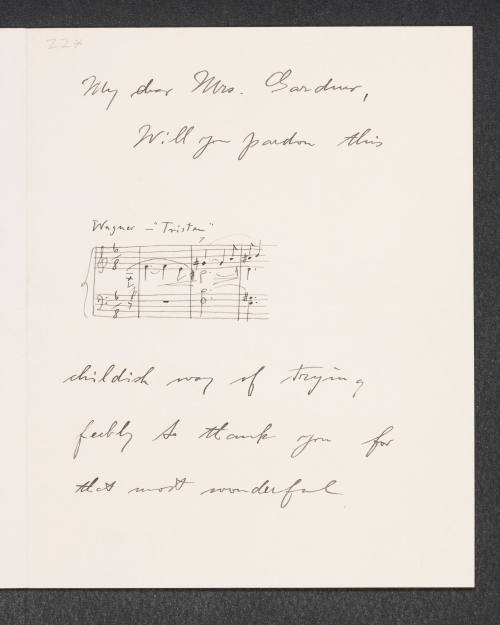 224
My dear Mrs. Gardner,
Will you pardon this
Wagner – "Tristan"
6 8
6 8
childish way of trying
feebly to thank you for
that most wonderful